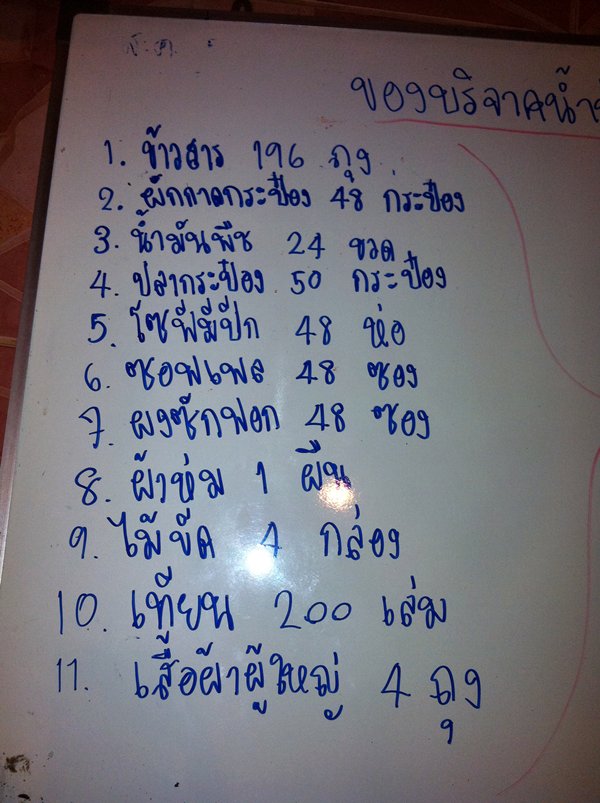 ส.ค.
ของบริจาคน้ำ
1. ข้าวสาร 196 ถุง
2. ผักกาดกระป๋อง 48 กระป๋อง
3. น้ำมันพืช 24 ขวด
4. ปลากระป๋อง 50 กระป๋อง
5. โซฟีมีปีก 48 ห่อ
6. ซอฟเฟล 48 ซอง
7. ผงซักฟอก 48 ซอง
8. ผ้าห่ม 1 ผืน
9. ไม้ขีด 4 กล่อง
10. เทียน 200 เล่ม
11. เสื้อผ้าผู้ใหญ่ 4 ถุง